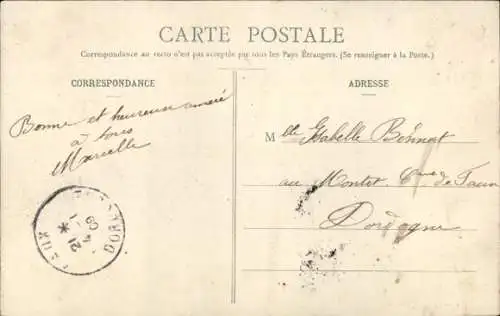 CARTE POSTALE
Correspondance au recto n'est pas acceptée par tous les Pays Étrangers. (Se renseigner à la Poste.)
CORRESPONDANCE
ADRESSE
Bonne et heureuse année
à tous
Marcelle
Mlle Isabelle Bonnat
au Montet Cne de
Dordogne
21
09